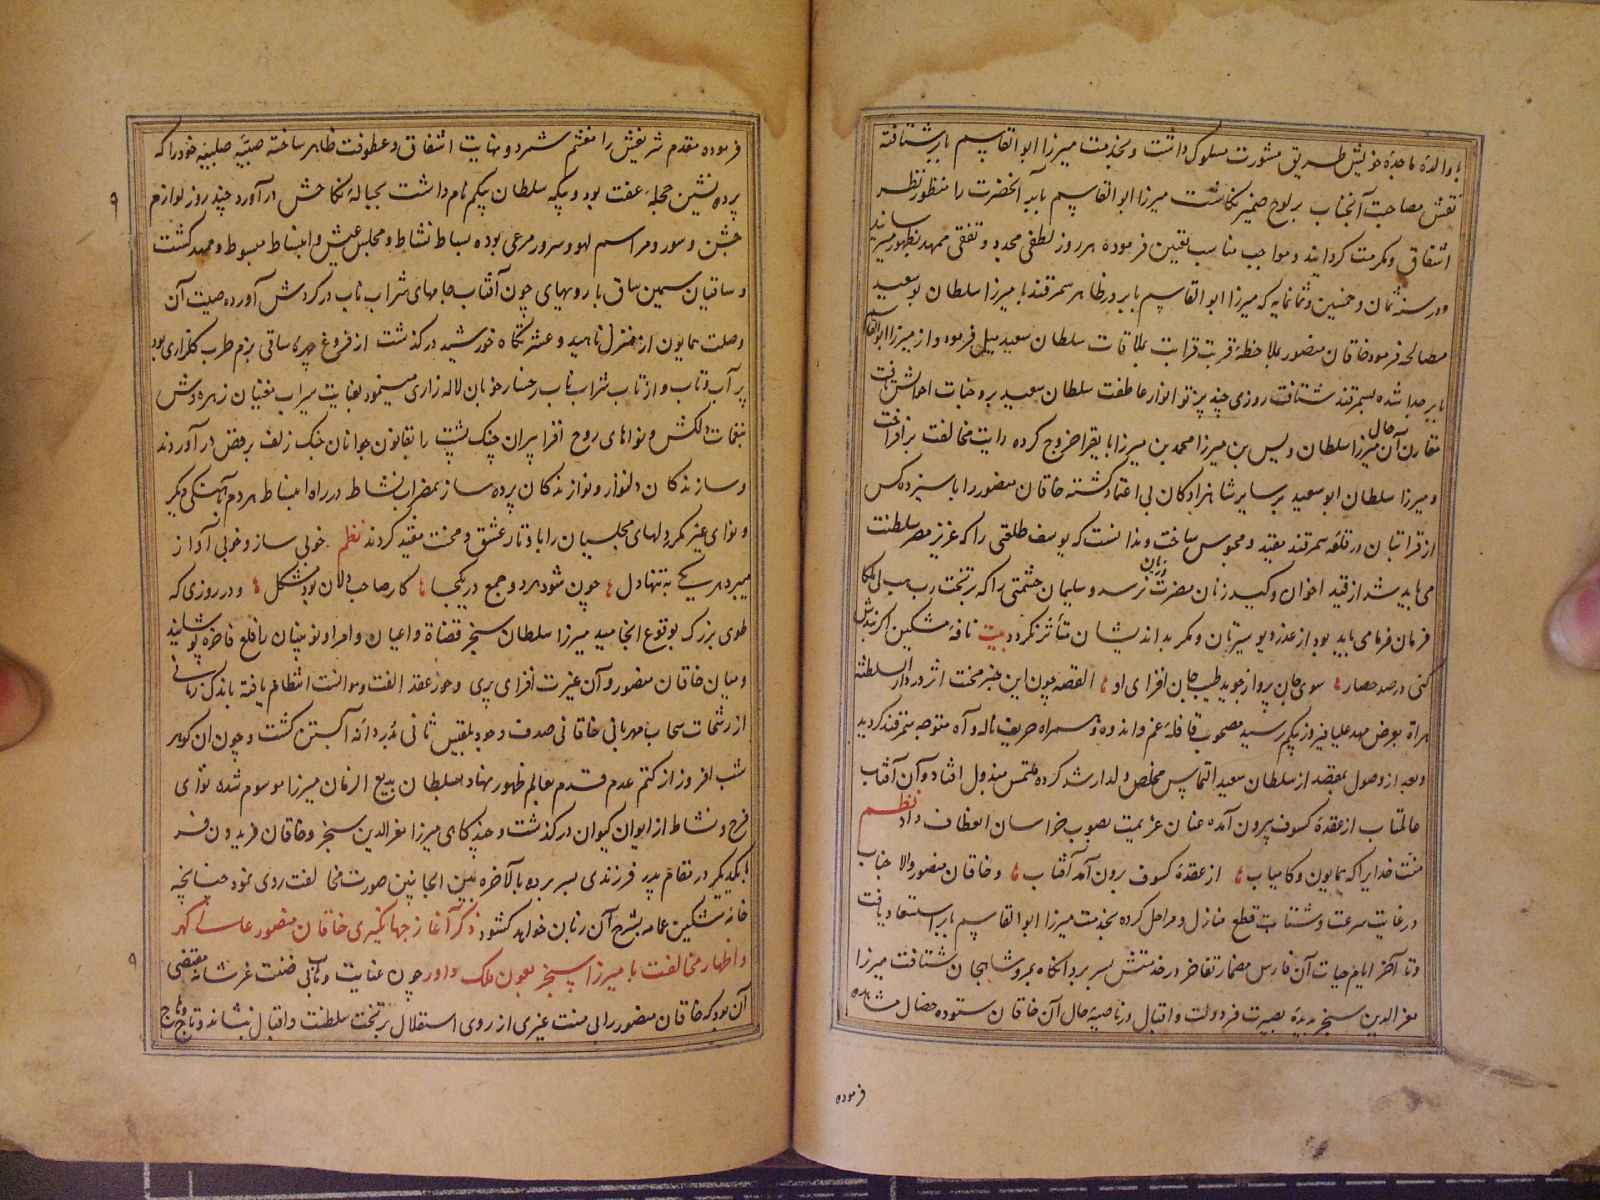 با والدهٔ ماجدهٔ خویش طریق مشورت مسلوک داشت و بخدمت میرزا ابوالقاسم بابر شتافته
نقش مصاحبت آنجناب بر لوح ضمیر نگاشت میرزا ابوالقاسم بابر آنحضرت را منظور نظر
اشفاق و مکرمت گردانید و مواجب مناسب تعیین فرموده هر روز لطفی مجدد و تفقدی ممهد بظهور میرسانید
و در سنه ثمان و خمسین و ثمانمایه که میرزا ابوالقاسم بابر در ظاهر سمرقند با میرزا سلطان ابوسعید
مصالحه فرمود خاقان منصور بملاحظهٔ قربت قرابت بملاقات سلطان سعید میل فرمود و از میرزا ابوالقاسم
بابر جدا شده بسمرقند شتافت روزی چند پرتو انوار عاطفت سلطان سعید بر وجنات احوالش تافت
مقارن آن حال میرزا سلطان ویس بن میرزا محمد بن میرزا بایقرا خروج کرده رایت مخالفت برافراخت
و میرزا سلطان ابوسعید بر سایر شاهزادگان بی اعتماد گشته خاقان منصور را با سیزده کس
از قراتبان در قلعه سمرقند مقید و محبوس ساخت و ندانست که یوسف طلعتی را که عزیز مصر سلطنت
می باید شد از قید اخوان و کید زنان مضرت نرسد و سلیمان حشمتی را که بر تخت رب هب لی ملکا
فرمان فرما می باید بود از عذر دیو سیرتان و مکر بداندیشان متأثر نگردد بیت نافه مشکین اگر بندش
کنی در صد حصار سوی جان پرواز جوید طیب جان افزای او القصه چون این خبر محنت اثر در دار السلطنه
هراة بعرض مهد علیا فیروزه بیگم رسید مصحوب قافلهٔ غم و اندوه و همراه حریف ناله و آه متوجه سمرقند گردید
و بعد از وصول بمقصد از سلطان سعید التماس مخلص ولد ارشد کرده ملتمس مبذول افتاد و آن آفتاب
عالمتاب از عقدهٔ کسوف بیرون آمده عنان عزیمت بصوب خراسان انعطاف داد نظم
منت خدایرا که همایون و کامیاب از عقدهٔ کسوف برون آمد آفتاب و خاقان منصور والا جناب
در غایت سرعت و شتاب قطع منازل و مراحل کرده بخدمت میرزا ابوالقاسم بابر استسعاد یافت
و تا آخر ایام حیات آن فارس مضمار تفاخر در خدمتش بسر برد آنگاه بمرو شاهجان شتافت میرزا
معز الدین سنجر بدیده بصیرت فر دولت و اقبال در ناصیه حال آن خاقان ستوده خصال مشاهده
فرموده
فرموده مقدم شریفش را مغتنم شمرد و نهایت اشفاق و عطوفت ظاهر ساخته صبیّه صلبیه خود را که
پرده نشین حجلهٔ عفت بود و بیکه سلطان بیگم نام داشت بحبالهٔ نکاحش در آورد چند روز لوازم
جشن و سور و مراسم لهو و سرور مرعی بوده بساط نشاط و مجلس عیش و انبساط مبسوط و ممهد گشت
و ساقیان سمین ساق با رویهای چون آفتاب جامهای شراب ناب در گردش آورده صیت آن
وصلت همایون از منزل ناهید و عشرتگاه خورشید درگذشت از فروغ چهرهٔ ساقی بزم طرب گلزاری بود
پر آب و تاب و از تاب شراب ناب رخسار خوبان لاله زاری مینمود بغایت سیراب مغنیان زهره وش
بنغمات دلکش و نواهای روح افزا پیران چنگ پشت را بقانون جوانان خنک زلف برقص در آوردند
و سازندکان دلنواز و نوازندکان پرده ساز بمضراب نشاط در راه انبساط هر دم آهنگی دیگر
و نوای غیر مکرر دلهای مجلسیان را با وتار عشق و محبت مقید کردند نظم خوبی ساز و خوبی آواز
میبرد هر یکی به تنها دل چون شود هر دو جمع در یکجا کار صاحب دلان بود مشکل و در روزی که
طوی بزرک بوقوع انجامید میرزا سلطان سنجر قضاة و اعیان و امرا و نوینان را خلع فاخره پوشانید
و میان خاقان منصور و آن غیرت افزای پری و حور عقد الفت و موانست انتظام یافته باندک زمانی
از رشحات سحاب مهربانی خاقانی صدف وجود بلقیس ثانی مُبردانه آبستن گشت و چون آن گوهر
شب افروز از کتم عدم قدم بعالم ظهور نهاد بسلطان بدیع الزمان میرزا موسوم شده نوای
فرح و نشاط از ایوان کیوان درگذشت و چندگاهی میرزا معز الدین سنجر و خاقان فریدون فر
با یکدیگر در مقام پدر فرزندی بسر برده بالاخره بین الجانبین صورت مخالفت روی نمود چنانچه
خامه مشکین عمامه بشرح آن زبان خواهد گشود ذکر آغاز جهانگیری خاقان منصور عالی گهر
و اظهار مخالفت با میرزا سنجر بعون ملک داور چون عنایت وهابی ضنت عز شانه مقتضی
آن بود که خاقان منصور را بی منت غیری از روی استقلال بر تخت سلطنت و اقبال نشاند و تاج وهاج